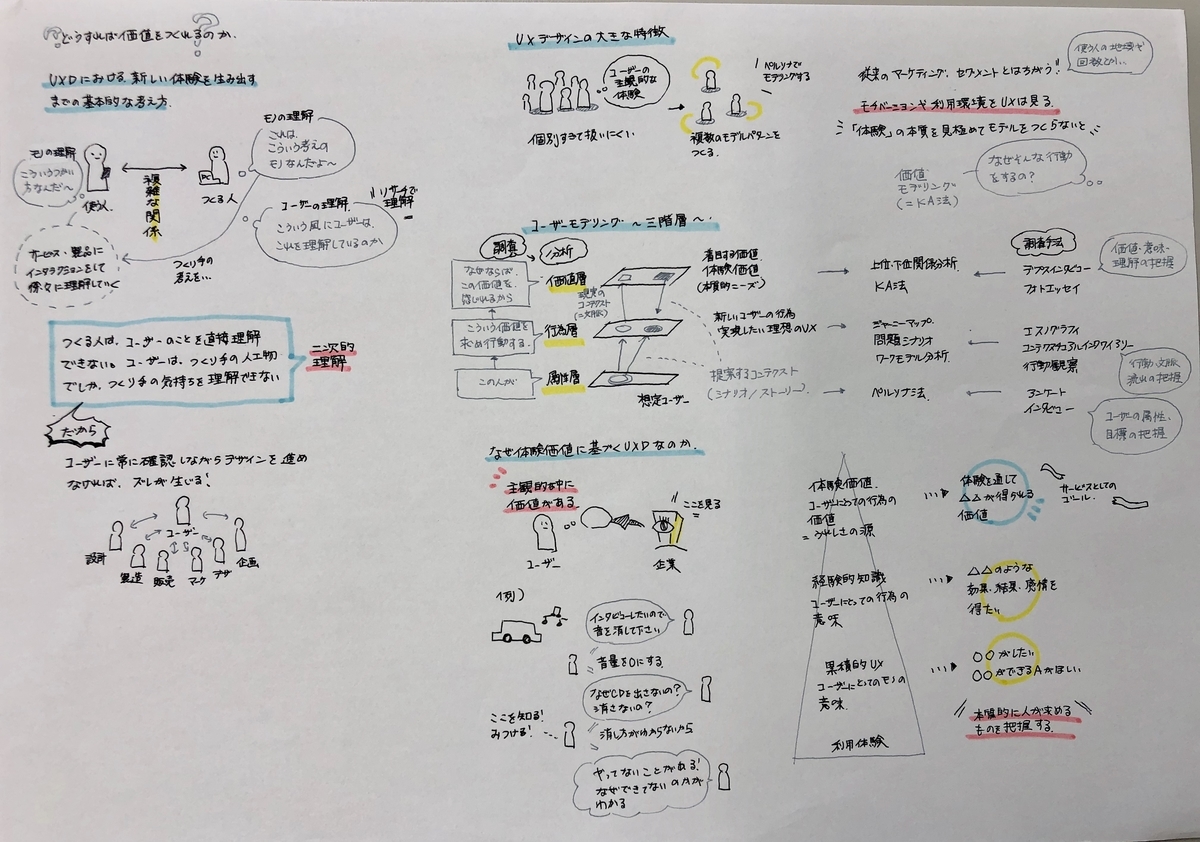 どうすれば価値をつくれるのか.
UXDにおける新しい体験を生み出す
までの基本的な考え方.
モノの理解
こういうつかい
方なんだ〜
使う人
複雑な関係
PC
つくる人
モノの理解
これは、
こういう考えの
モノなんだよ〜
ユーザーの理解
こういう風にユーザーは、
これを理解しているのか
リサーチで
理解
サービス・製品に
インタラクションをして
徐々に理解していく
つくり手の
考えを…
つくる人は、ユーザーのことを直接理解
できない。ユーザーは、つくり手の人工物
でしか、つくり手の気持ちを理解できない
二次的
理解
だから
ユーザーに常に確認しながらデザインを進め
なければ、ズレが生じる!
ユーザー
設計
製造
販売
マーケ
デザ
企画
UXデザインの大きな特徴
ユーザーの
主観的な
体験
個別すぎて扱いにくい.
ペルソナで
モデリングする
複数のモデルパターンを
つくる.
従来のマーケティング、セグメントとはちがう!
使う人の地域や
回数とか…
モチベーションや利用環境をUXは見る.
「体験」の本質を見極めてモデルをつくらないと
価値
モデリング
(=KA法)
なぜそんな行動
をするの?
ユーザーモデリング 〜三階層〜.
調査
分析
なぜならば、
この価値を、
感じれるから
価値層
現実の
コンテクスト
(=文脈)
着目する価値
体験価値
(本質的ニーズ)
上位・下位関係分析.
KA法
調査手法
デプスインタビュー
フォトエッセイ
価値・意味・
理解の把握
こういう価値を
求め行動する.
行為層
新しいユーザーの行為
実現したい理想のUX
ジャーニーマップ.
問題シナリオ
ワークモデル分析.
エスノグラフィ
コンテクスチュアルインクワイアリー
行動観察
行動・文脈
流れの把握
この人が
属性層
想定ユーザー
提案するコンテクスト
(シナリオ/ストーリー)
ペルソナ法.
アンケート
インタビュー
ユーザーの属性、
目標の把握
なぜ体験価値に基づくUXDなのか.
主観的な中に
価値がある.
ユーザー
企業
ここを見る
例)
インタビューしたいので
音を消して下さい
音量を0にする
なぜCDを出さないの?
消さないの?
ここを知る!
みつける!
消し方がわからないから
やってないことがある!
なぜできてないのかが
わかる
体験価値.
ユーザーにとっての行為の
価値
=うれしさの源
体験を通して
△△が得られる
価値
サービスとしての
ゴール.
経験的知識
ユーザーにとっての行為の
意味
△△のような
効果・結果・感情を
得たい
累積的UX
ユーザーにとってのモノの
意味.
○○がしたい
○○ができるAがほしい
利用体験
本質的に人が求める
ものを把握する.